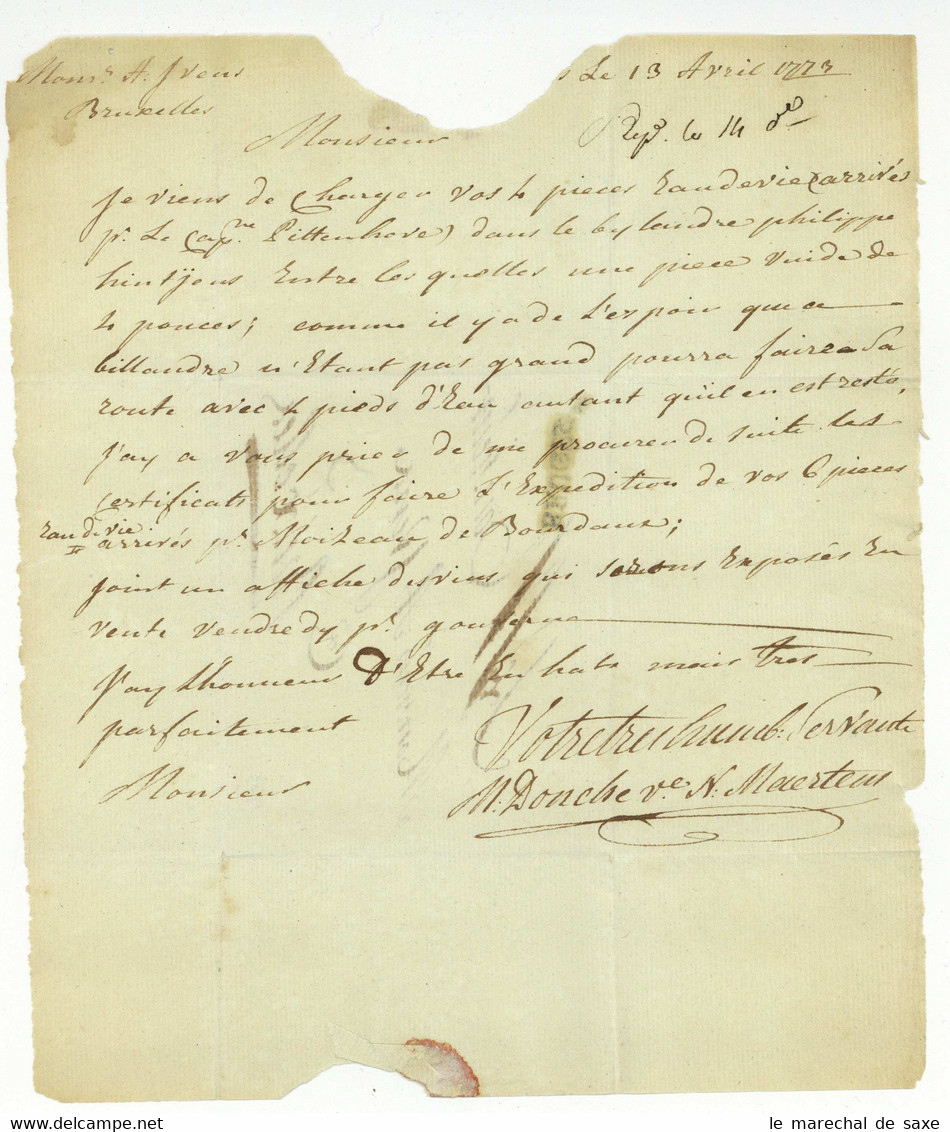 Monsr. A. Ivens
Bruxelles
Le 13 Avril 1773
Rep. le 14 do
Monsieur
Je viens de Charger vos 4 pieces Eaudevie (arrivés
pr. Le Capne. Pittenhove) dans le bylandre philippe
hintjens Entre les quelles une piece vuide de
4 pouces; comme il y a de L'espoir que ce
billandre n'Etant pas grand pourra faire Sa
route avec 4 pieds d'Eau autant qu'il en est resté,
J'ay a vous prier de me procurer de suite les
Certificats pour faire L'Expedition de vos 6 pieces
Eaudevie
arrivés pr. Moizeau de Bourdaux;
Joint un affiche des vins qui serons Exposés En
vente vendredy pr. gouverne
J'ay Lhonneur D'Etre En hate mais tres
parfaitement
Votre tres humb. Servante
Monsieur
M. Donche ve. N. Maertens
delcampe.net
le marechal de saxe